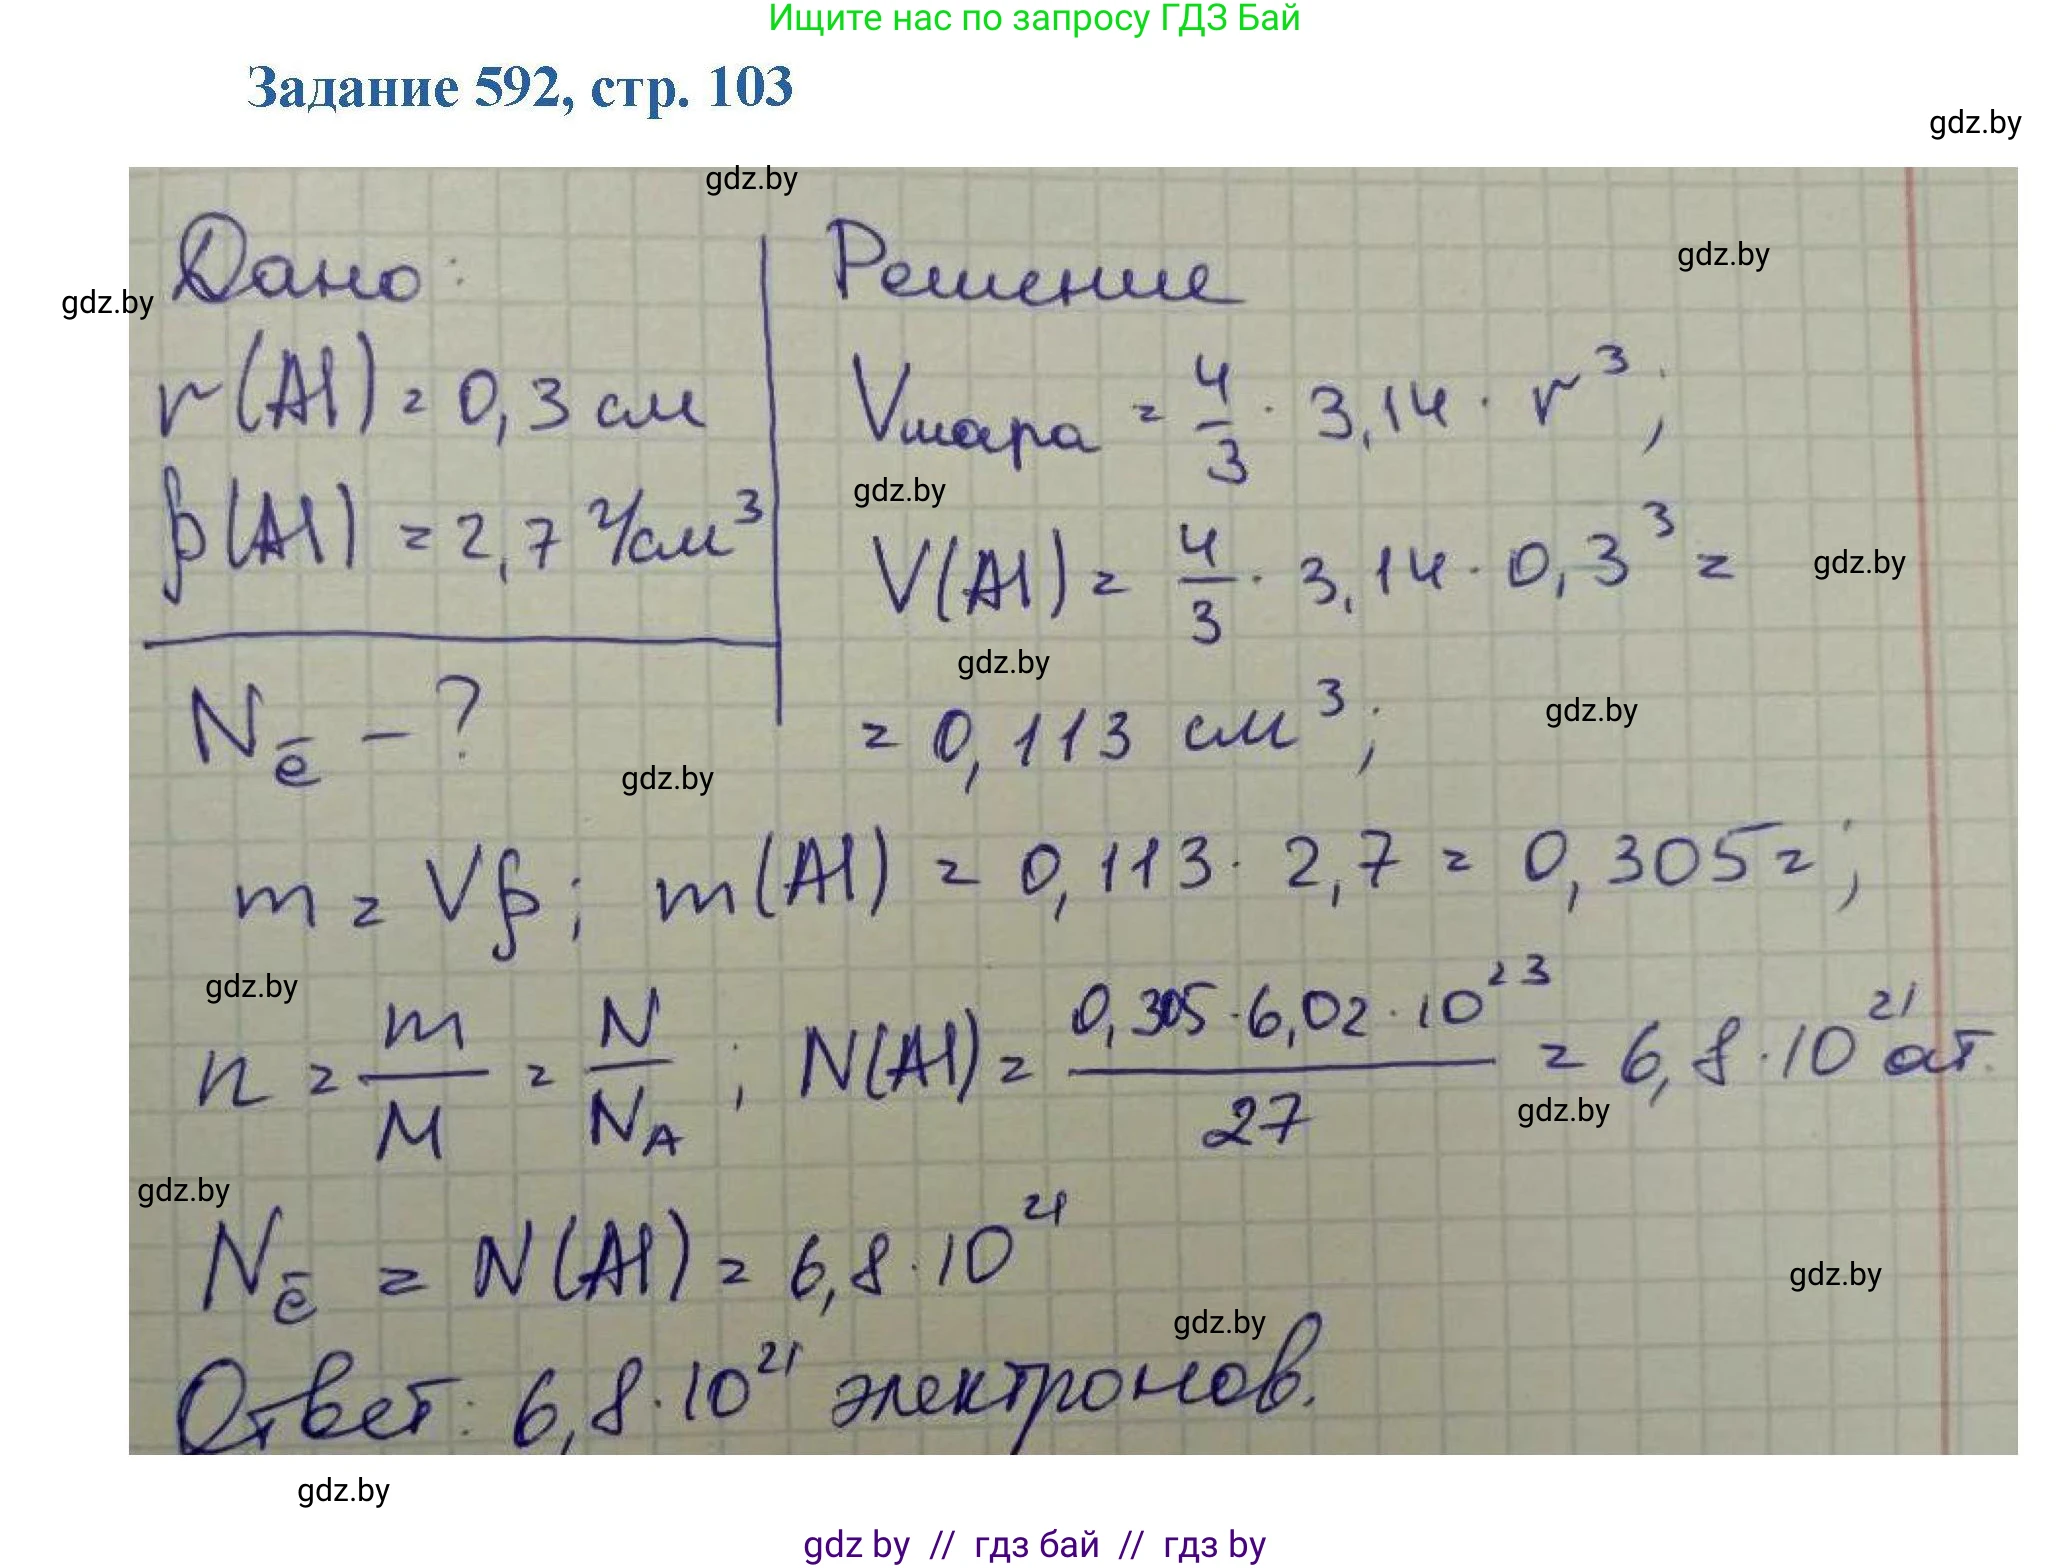 Ищите нас по запросу ГДЗ Бай
Задание 592, стр. 103
gdz.by
gdz.by
Дано:
Решение
gdz.by
gdz.by
r(Al) = 0,3 см
Vшара = 4/3 · 3,14 · r³;
gdz.by
ρ(Al) = 2,7 г/см³
V(Al) = 4/3 · 3,14 · 0,3³ =
gdz.by
gdz.by
Nē - ?
= 0,113 см³;
gdz.by
gdz.by
m = Vρ; m(Al) = 0,113 · 2,7 = 0,305 г;
gdz.by
n = m/M = N/N_A; N(Al) = 0,305 · 6,02 · 10²³/27 = 6,8 · 10²¹ ат.
gdz.by
gdz.by
Nē = N(Al) = 6,8 · 10²¹
gdz.by
gdz.by
Ответ: 6,8 · 10²¹ электронов.
gdz.by
gdz by // гдз бай // гдз by